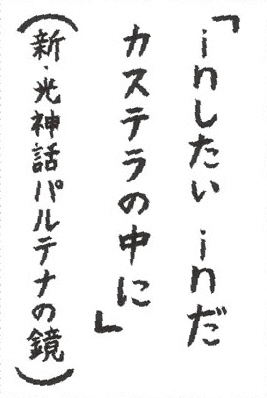 「inしたい inだ
カステラの中に」
(新・光神話パルテナの鏡)